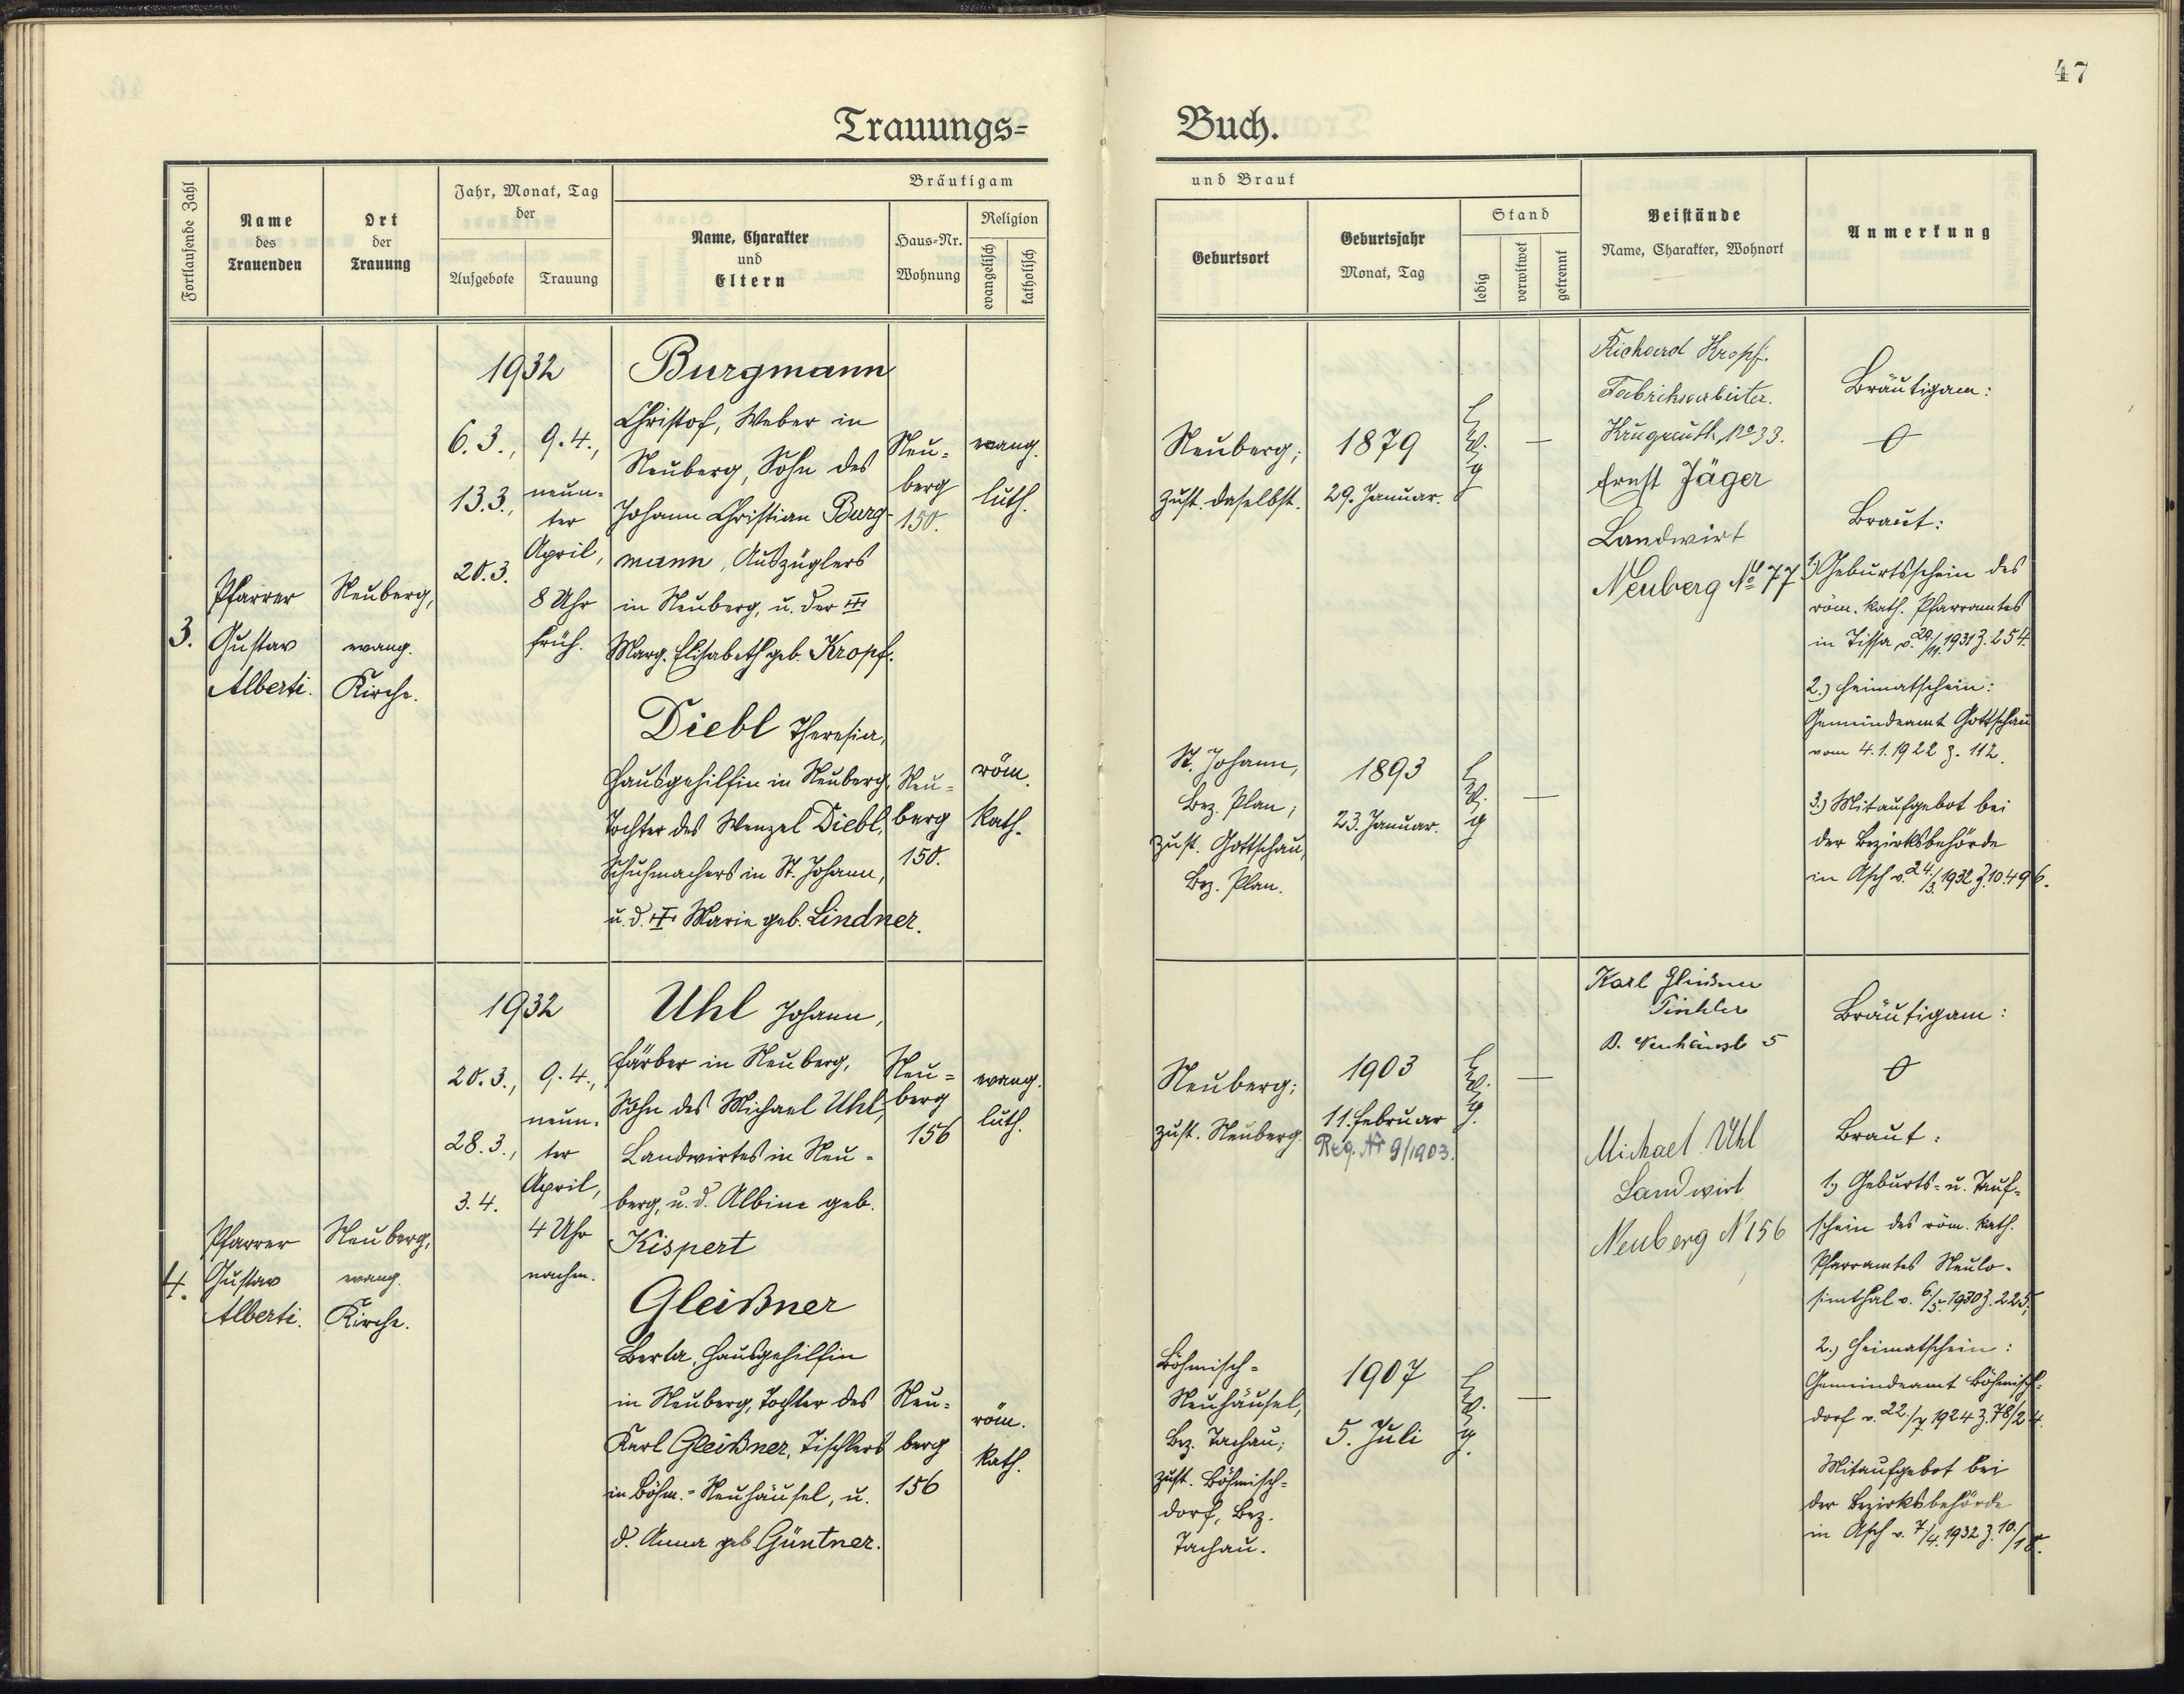 47
Trauungs=
Buch.
Fortlaufende Zahl
Name
des
Trauenden
Ort
der
Trauung
Jahr, Monat, Tag
der
Aufgebote
Trauung
Bräutigam
Name, Charakter
und
Eltern
Haus=Nr.
Wohnung
Religion
evangelisch
katholisch
und Braut
Geburtsort
Geburtsjahr
Monat, Tag
Stand
ledig
verwitwet
getrennt
Beistände
Name, Charakter, Wohnort
Anmerkung
3.
Pfarrer
Gustav
Alberti.
Neuberg,
evang.
Kirche.
1932
6.3.,
13.3.,
20.3.
9.4.,
neun-
ter
April,
8 Uhr
früh.
Burgmann
Christof, Weber in
Neuberg, Sohn des
Johann Christian Burg-
mann, Auszüglers
in Neuberg, u. der
Marg. Elisabeth geb. Kropf.
Neu=
berg
150.
evang.
luth.
Diebl Theresia,
Hausgehilfin in Neuberg,
Tochter des Wenzel Diebl,
Schuhmachers in St. Johann,
u. d. Marie geb. Lindner.
Neu=
berg
150.
röm.
kath.
Neuberg;
zust. daselbst.
1879
29. Januar.
—
St. Johann,
Bez. Plan;
zust. Gottschau,
Bez. Plan.
1893
23. Januar.
—
Richard Kropf.
Fabriksarbeiter.
Krugreuth No 33.
Ernst Jäger
Landwirt
Neuberg No 77
Bräutigam:
Braut:
1.) Geburtsschein des
röm. kath. Pfarramtes
in Tissa v. 29./11. 1931 Z. 254.
2.) Heimatschein:
Gemeindeamt Gottschau
vom 4.1.1922 Z. 112.
3.) Mitaufgebot bei
der Bezirksbehörde
in Asch v. 24./3. 1932 Z. 10.496.
4.
Pfarrer
Gustav
Alberti.
Neuberg,
evang.
Kirche.
1932
20.3.,
28.3.,
3.4.
9.4.,
neun-
ter
April,
4 Uhr
nachm.
Uhl Johann,
Färber in Neuberg,
Sohn des Michael Uhl,
Landwirtes in Neu-
berg, u. d. Albine geb.
Kispert
Neu=
berg
156
evang.
luth.
Gleißner
Berta, Hausgehilfin
in Neuberg, Tochter des
Karl Gleißner, Tischlers
in Böhm.-Neuhäusel, u.
d. Anna geb Güntner.
Neu=
berg
156
röm.
kath.
Neuberg;
zust. Neuberg.
1903
11. Februar
Reg. Nr 9/1903.
—
Böhmisch=
Neuhäusel,
Bez. Tachau;
zust. Böhmisch=
dorf, Bez.
Tachau.
1907
5. Juli
—
Karl Gleissner
Tischler
B. Neuhäusl 5
Michael Uhl
Landwirt
Neuberg N 156
Bräutigam:
Braut:
1.) Geburts= u. Tauf=
schein des röm. kath.
Pfarramtes Neulo-
simthal v. 6./5. 1930 Z. 225;
2.) Heimatschein:
Gemeindeamt Böhmisch=
dorf v. 22./7. 1924 Z. 78/24.
Mitaufgebot bei
der Bezirksbehörde
in Asch v. 7./4. 1932 Z. 10./18.